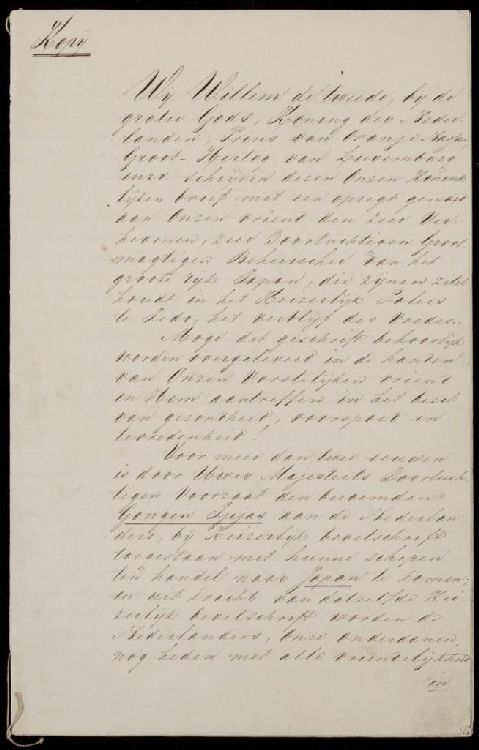 Kopij
Wij Willem de tweede, bij de
gratie Gods, Koning der Neder-
landen, Prins van Oranje Nassau,
Groot-Hertog van Luxemburg
enz. schrijven dezen Onzen Konink-
lijken brief met een opregt gemoed
aan Onzen vriend den zeer Ver-
hevenen, zeer Doorluchtigen Groot-
magtigen Beheerscher van het
groote rijk Japan, die zijnen zetel
houdt in het Keizerlijk Paleis
te Jedo, het verblijf des vredes.
Moge dit geschrift behoorlijk
worden overgeleverd in de handen
van Onzen vorstelijken vriend
en Hem aantreffen in het bezit
van gezondheid, voorspoed en
tevredenheid!
Voor meer dan twee eeuwen
is door Uwer Majesteits Doorluch-
tigen Voorzaat den beroemden
Gongen Ijejas aan de Nederlan-
ders, bij Keizerlijk bevelschrift
toegestaan met hunne schepen
ten handel naar Japan te komen;
en uit kracht van datzelfde Kei-
zerlijk bevelschrift worden de
Nederlanders, Onze onderdanen,
nog heden met alle vriendelijkheid